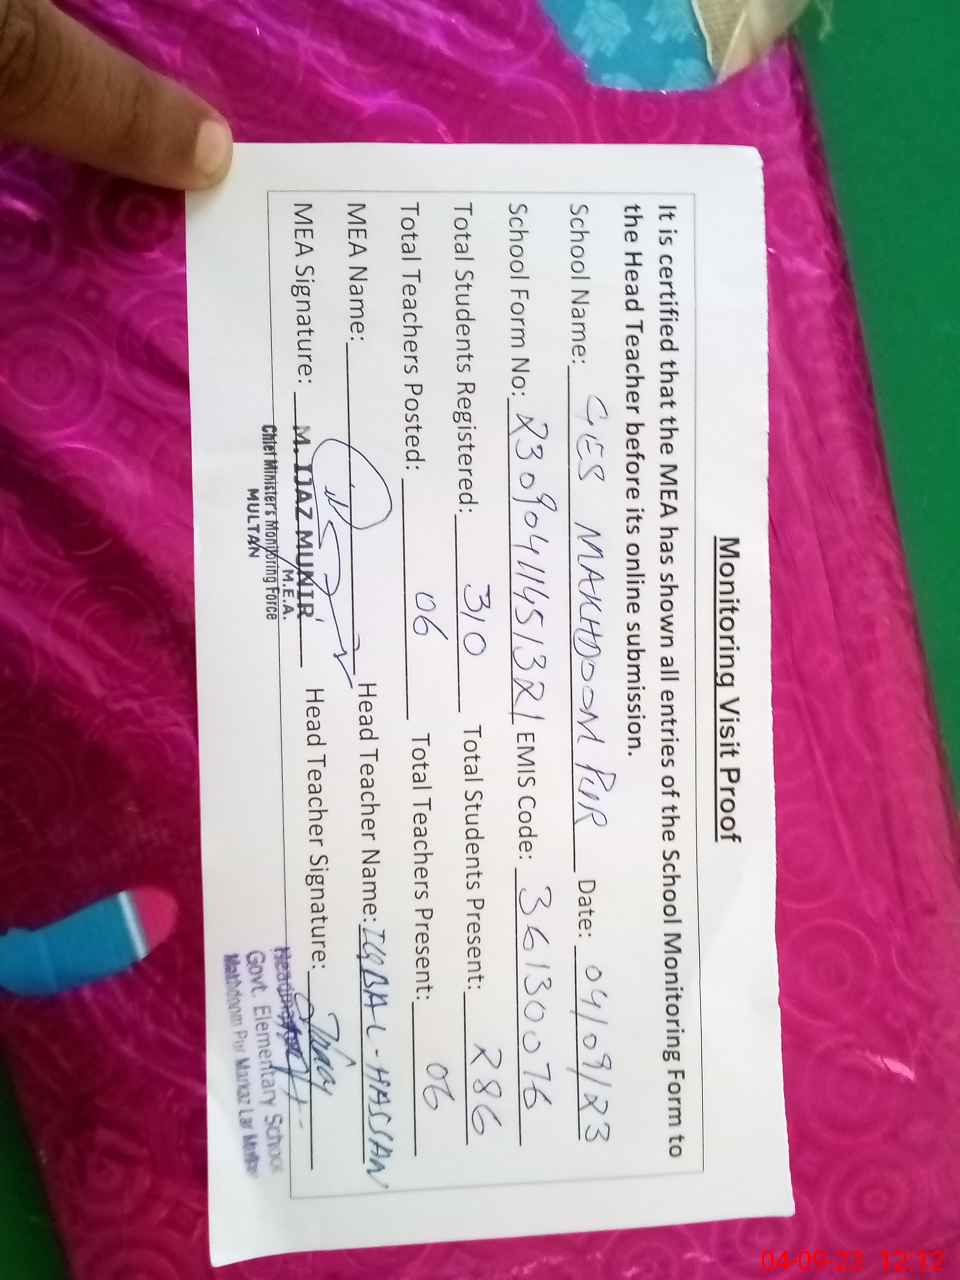 Monitoring Visit Proof
It is certified that the MEA has shown all entries of the School Monitoring Form to
the Head Teacher before its online submission.
School Name: GES MAKHDOOM PUR Date: 04/09/23
School Form No: 2309041451321 EMIS Code: 36130076
Total Students Registered: 310 Total Students Present: 286
Total Teachers Posted: 06 Total Teachers Present: 06
MEA Name: Head Teacher Name: IQBAL-HASSAN
MEA Signature: M. IJAZ MUNIR Head Teacher Signature:
M.E.A.
Chief Minister's Monitoring Force
MULTAN
Headmaster
Govt. Elementary School
Pur Markaz Lar
04-09-23 12:12